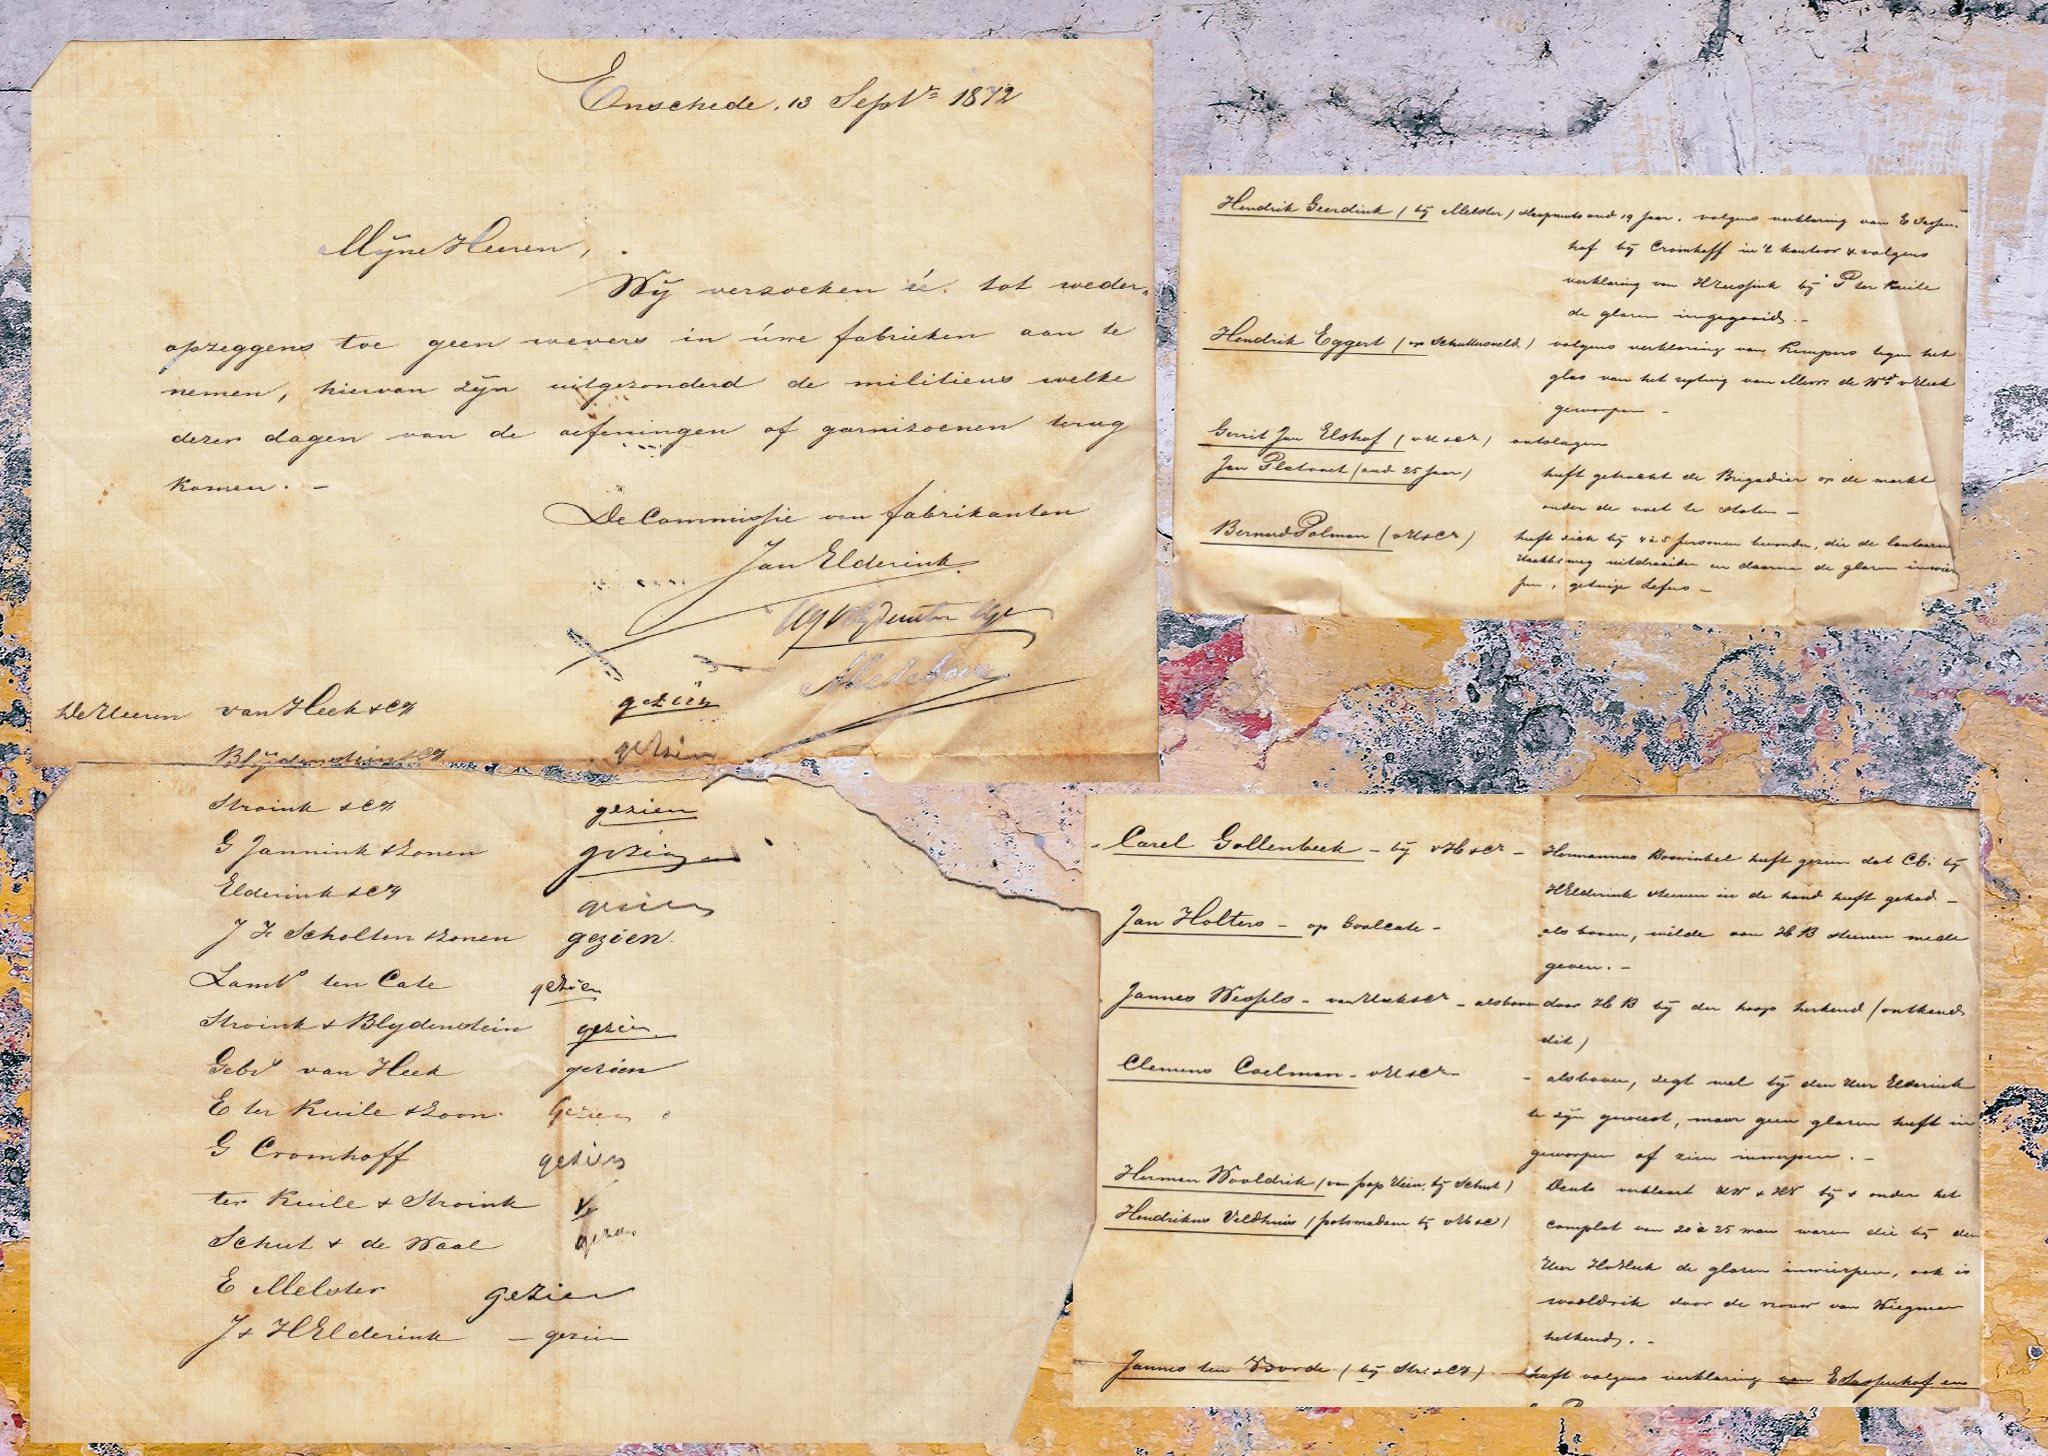 Enschede, 13 Septr 1872
Mijne Heeren,
Wij verzoeken ú tot weder-
opzeggens toe geen wevers in úwe fabrieken aan te
nemen, hiervan zijn uitgezonderd de militiens welke
dezer dagen van de oefeningen of garnizoenen terug
komen. -
De Commissie van fabrikanten
Jan Elderink
De Heeren van Heek & Co gezien
Blijdenstein & Co gezien
Stroink & Co gezien
G Jannink & Zonen gezien
Elderink & Co gezien
J F Scholten & Zonen gezien
Lambs ten Cate gezien
Stroink & Blydenstein gezien
Gebr van Heek gezien
E ter Kuile & Zoon. Gezien
G Cromhoff gezien
ter Kuile & Stroink
Schut & de Waal
E Melster gezien
J & H Elderink - gezien
Hendrik Geerdink (bij Melster) oud 19 jaar. volgens verklaring van E Sassen-
hof bij Cromhoff in 't kantoor & volgens
verklaring van bij P ter Kuile
de glazen ingegooid. -
Hendrik Eggert (op Schuttersveld) volgens verklaring van Kempers tegen het
glas van het rijtuig van Mevr. de Wd v Heek
geworpen -
Gerrit Jan Elshof (v H & Co) ontslagen
Jan Platvoet (oud 25 jaar) heeft getracht de Brigadier op de markt
onder de voet te stoten -
Bernard Polman (v H & Co) heeft zich bij 4 à 5 personen bevonden, die de lantaarn
uitdraaiden en daarna de glazen inwier
pen, getuige -
- Carel Gollenbeek - bij v H & Co - Hermannus heeft gezien dat CG. bij
H Elderink steenen in de hand heeft gehad -
Jan Holters - op - als boven, wilde aan H B steenen mede
geven. -
Jannes Wessels - van Heek & Co - als boven door H B bij den hoop herkend (ontkend
dit)
Clemens Coelman - v H & Co - - als boven, zegt wel bij den Heer Elderink
te zijn geweest, maar geen glazen heeft in
geworpen of zien inwerpen. -
Herman Wooldrik (van bij Schut) verklaart HW & HV bij & onder het
Hendrikus Veldhuis (bij v H & Co) complot van 20 à 25 man waren die bij den
Heer H v Heek de glazen inwierpen, ook is
wooldrik door de vrouw van Wiegman
herkend. -
Jannes ten Voorde (bij Str & Co) heeft volgens verklaring van E Sassenhof en